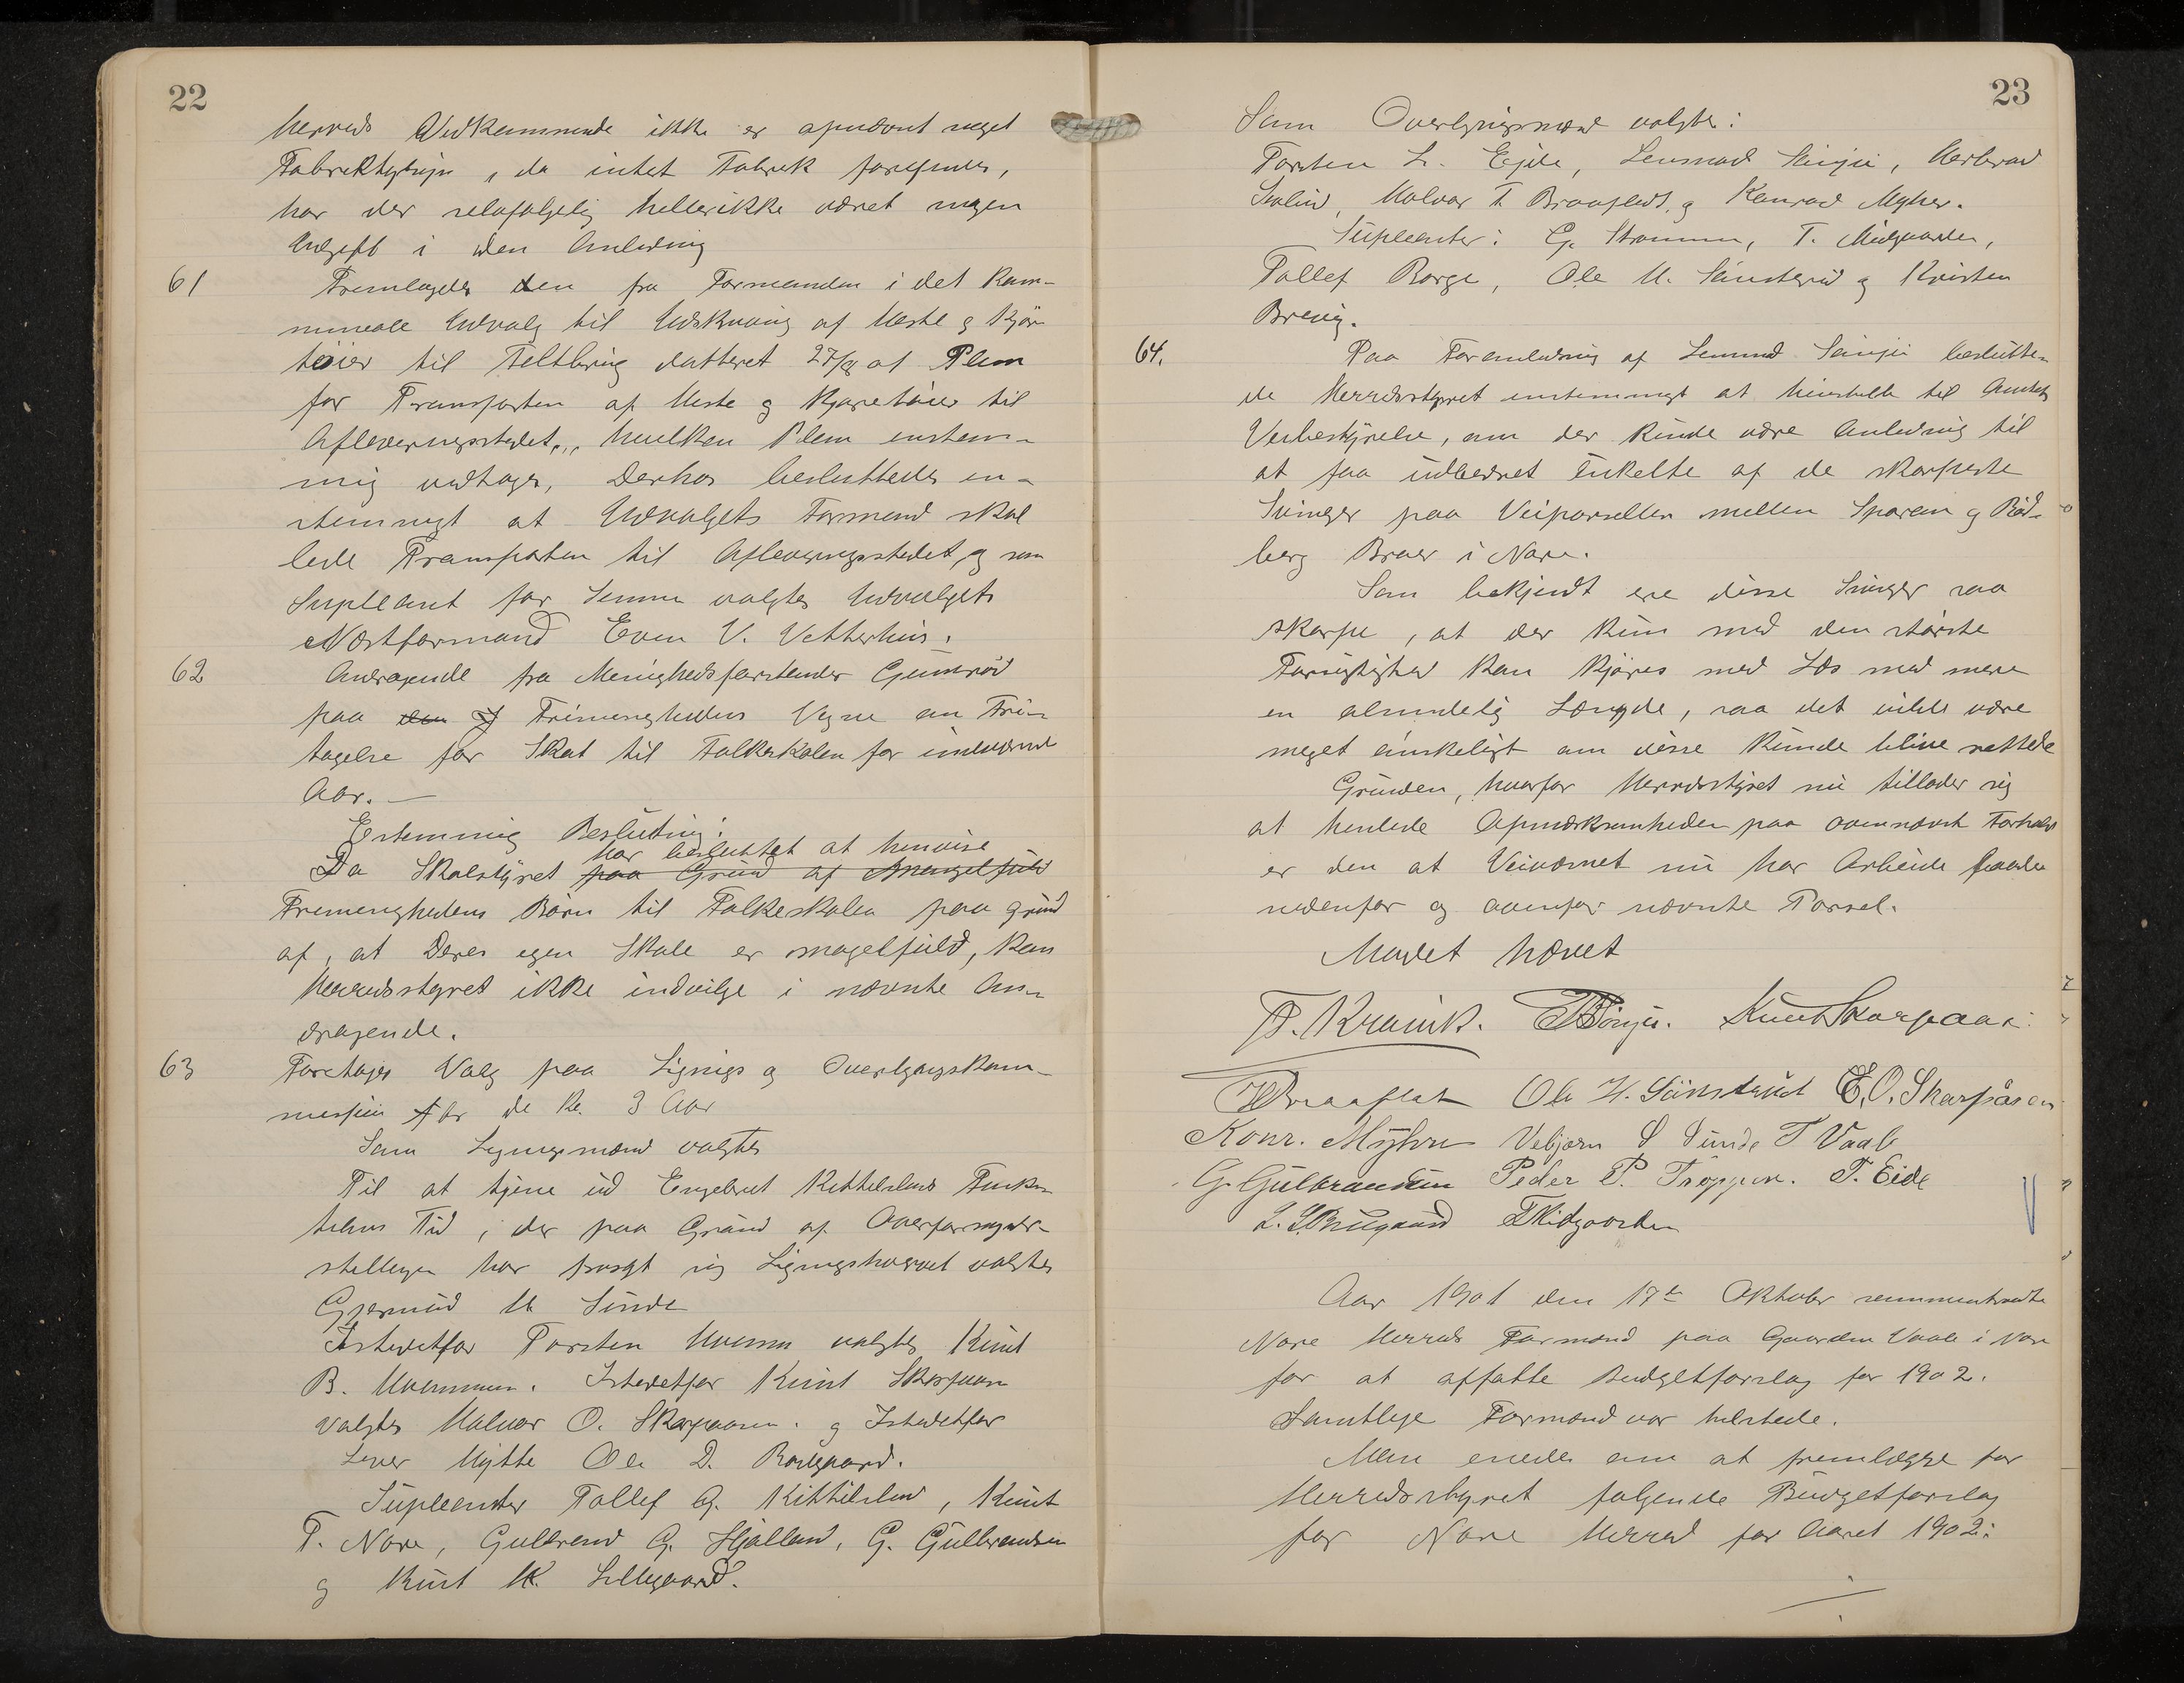 22
Herreds Vedkommende ikke er opnævnt noget
Fabriktilsyn, da intet Fabrik forefindes,
har der selvfølgelig hellerikke været nogen
Udgift i den Anledning
61
Fremlagdes den fra Formanden i det kom-
munale Udvalg til Udskrivning af Heste og Kjør-
tøier til Feltbrug datteret 27/8 01 Plan
for Transporten af Heste og Kjøretøier til
Afleveringsstedet, hvilken Plan enstem-
mig vedtoges, Derhos besluttedes en-
stemmigt at Udvalgets Formand skal
lede Transporten til Afleveringsstedet, og som
Supleant for Samme valgtes Udvalgets
Næstformand Even V. Vetterhus.
62
Andragende fra Menighedsforstander Gunnrød
paa Frimenighedens Vegne om Fri-
tagelse for Skat til Folkeskolen for indeværende
Aar. —
Enstemmig Beslutning:
har besluttet at henvise
Da Skolstyret paa Grund af Mangelfuld
Frimenighedens Børn til Folkeskolen paa grund
af, at Deres egen Skole er magelfuld, kan
Herredsstyret ikke indvilge i nævnte An-
dragende.
63
Foretoges Valg paa Lignigs og Overligngskom-
mesjion for de k. 3 Aar
Som Ligngsmænd valgtes
Til at tjene ud Engebret Kittilslands Funk-
tions Tid, der paa Grund af Overformynder-
stillingen har frasagt sig Ligngshvervet valgtes
Gjermund H Sunde
Istedetfor Torsten valgtes Knut
B. Istedetfor Knut Skarpaasen
valgtes Halvor O. Skarpaasen. og Istedetfor
Hytte Ole D.
Supleanter Tollef G. Kittilsland, Knut
T. Nore, Gulbrand G. Hjalland, G. Gulbrandsen
og Knut K. Lillegaard.
23
Som Overligngsmænd valgtes:
Torsten L. Ejde, Lensmand Sønju, Herbrand
Halvor T. Braafladt, og Konrad Myhre.
Supleanter: G. Strømmen, T. Midgaarden,
Tollef Borge, Ole H. Sønsterud og Kristen
64.
Paa Foranledning af Lensmand Sønju beslutte-
de Herredsstyret enstemmigt at henstille til Amtets
Veibestyrelse, om der kunde være Anledning til
at faa udbedret enkelte af de skarpeste
Svinger paa Veiparsellen mellem Sporan og Rød-
berg Broer i Nore.
Som bekjendt ere disse Svinger saa
skarpe, at der kun med den største
Forsigtighed kan kjøres med Læs med mere
en almindelig Længde, saa det vilde være
meget ønskeligt om disse kunde blive rettede
Grunden, hvorfor Herredsstyret nu tillader sig
at henlede Opmærksomheden paa ovennævnte Forhold
er den at Veivæsnet nu har Arbeide baade
nedenfor og ovenfor nævnte Parsel.
Mødet hævet
T. Kravik. T Sønju. Knut Skarpaas.
T Braaflat Ole H. Sønsterud E. O. Skarpåsen
Konr. Myhre Vebjørn S Sunde T Vaale
G. Gulbrandsen Peder P. Trøppen. T. Eide
L. T Midgaarden
Aar 1901 den 17de Oktober sammentraadte
Nore Herreds Formænd paa Gaarden Vaale i Nore
for at affatte Budgetforslag for 1902.
Samtlige Formænd var tilstede.
Man enedes om at fremlægge for
Herredsstyret følgende Budgetforslag
for Nore Herred for Aaret 1902: